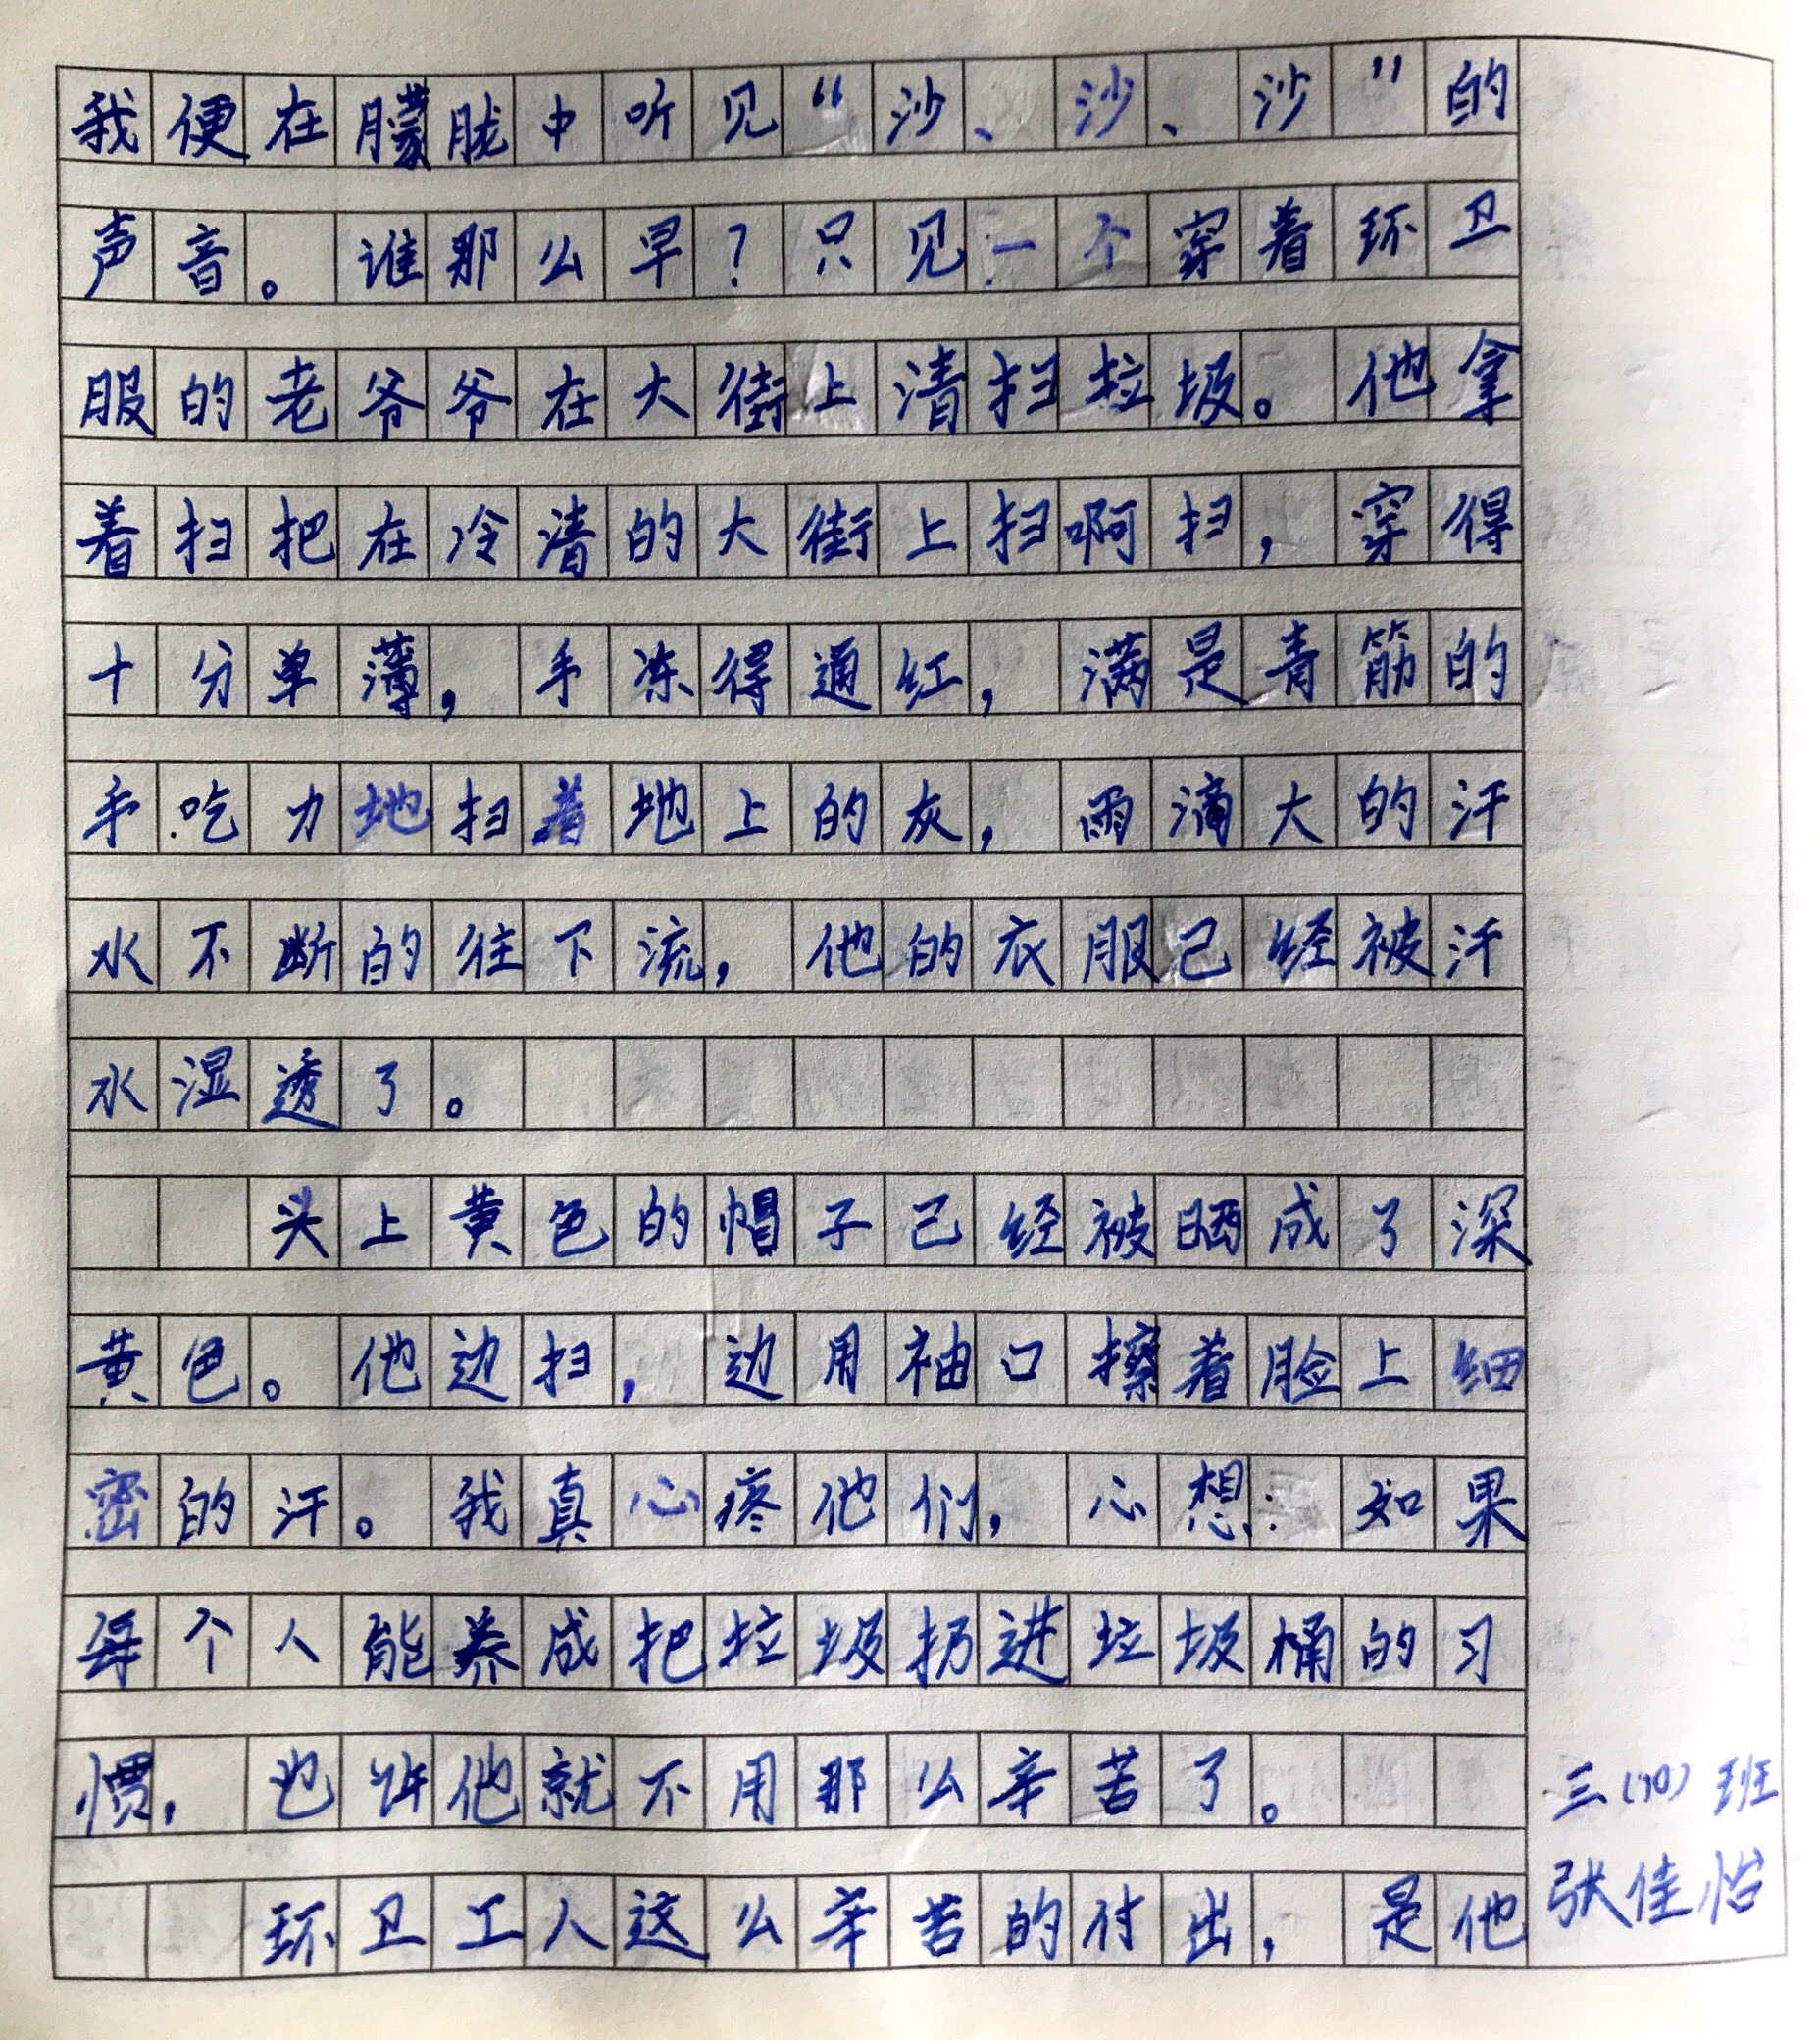 我便在朦胧中听见“沙、沙、沙”的
声音。谁那么早？只见一个穿着环卫
服的老爷爷在大街上清扫垃圾。他拿
着扫把在冷清的大街上扫啊扫，穿得
十分单薄，手冻得通红，满是青筋的
手吃力地扫着地上的灰，雨滴大的汗
水不断的往下流，他的衣服己经被汗
水湿透了。
头上黄色的帽子己经被晒成了深
黄色。他边扫，边用袖口擦着脸上细
密的汗。我真心疼他们，心想：如果
每个人能养成把垃圾扔进垃圾桶的习
惯，也许他就不用那么辛苦了。
三（10）班
环卫工人这么辛苦的付出，是他
张佳怡